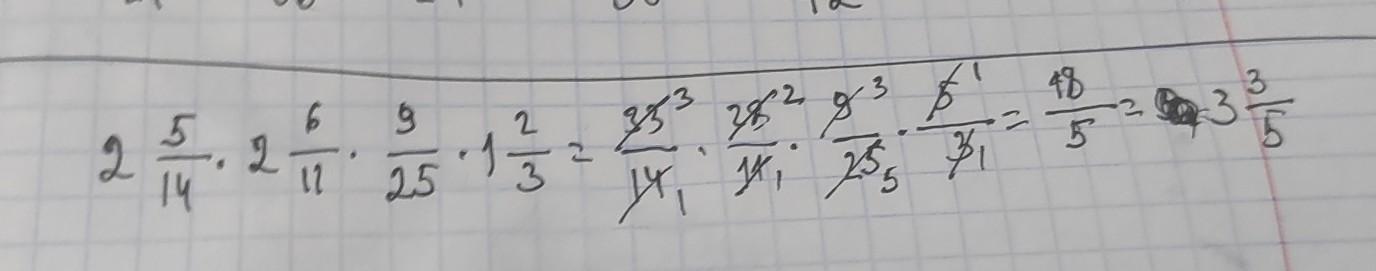 2 5/14 · 2 6/11 · 9/25 · 1 2/3 = 33³/14₁ · 28²/11₁ · 9³/25₅ · 5¹/3₁ = 18/5 = 3 3/5